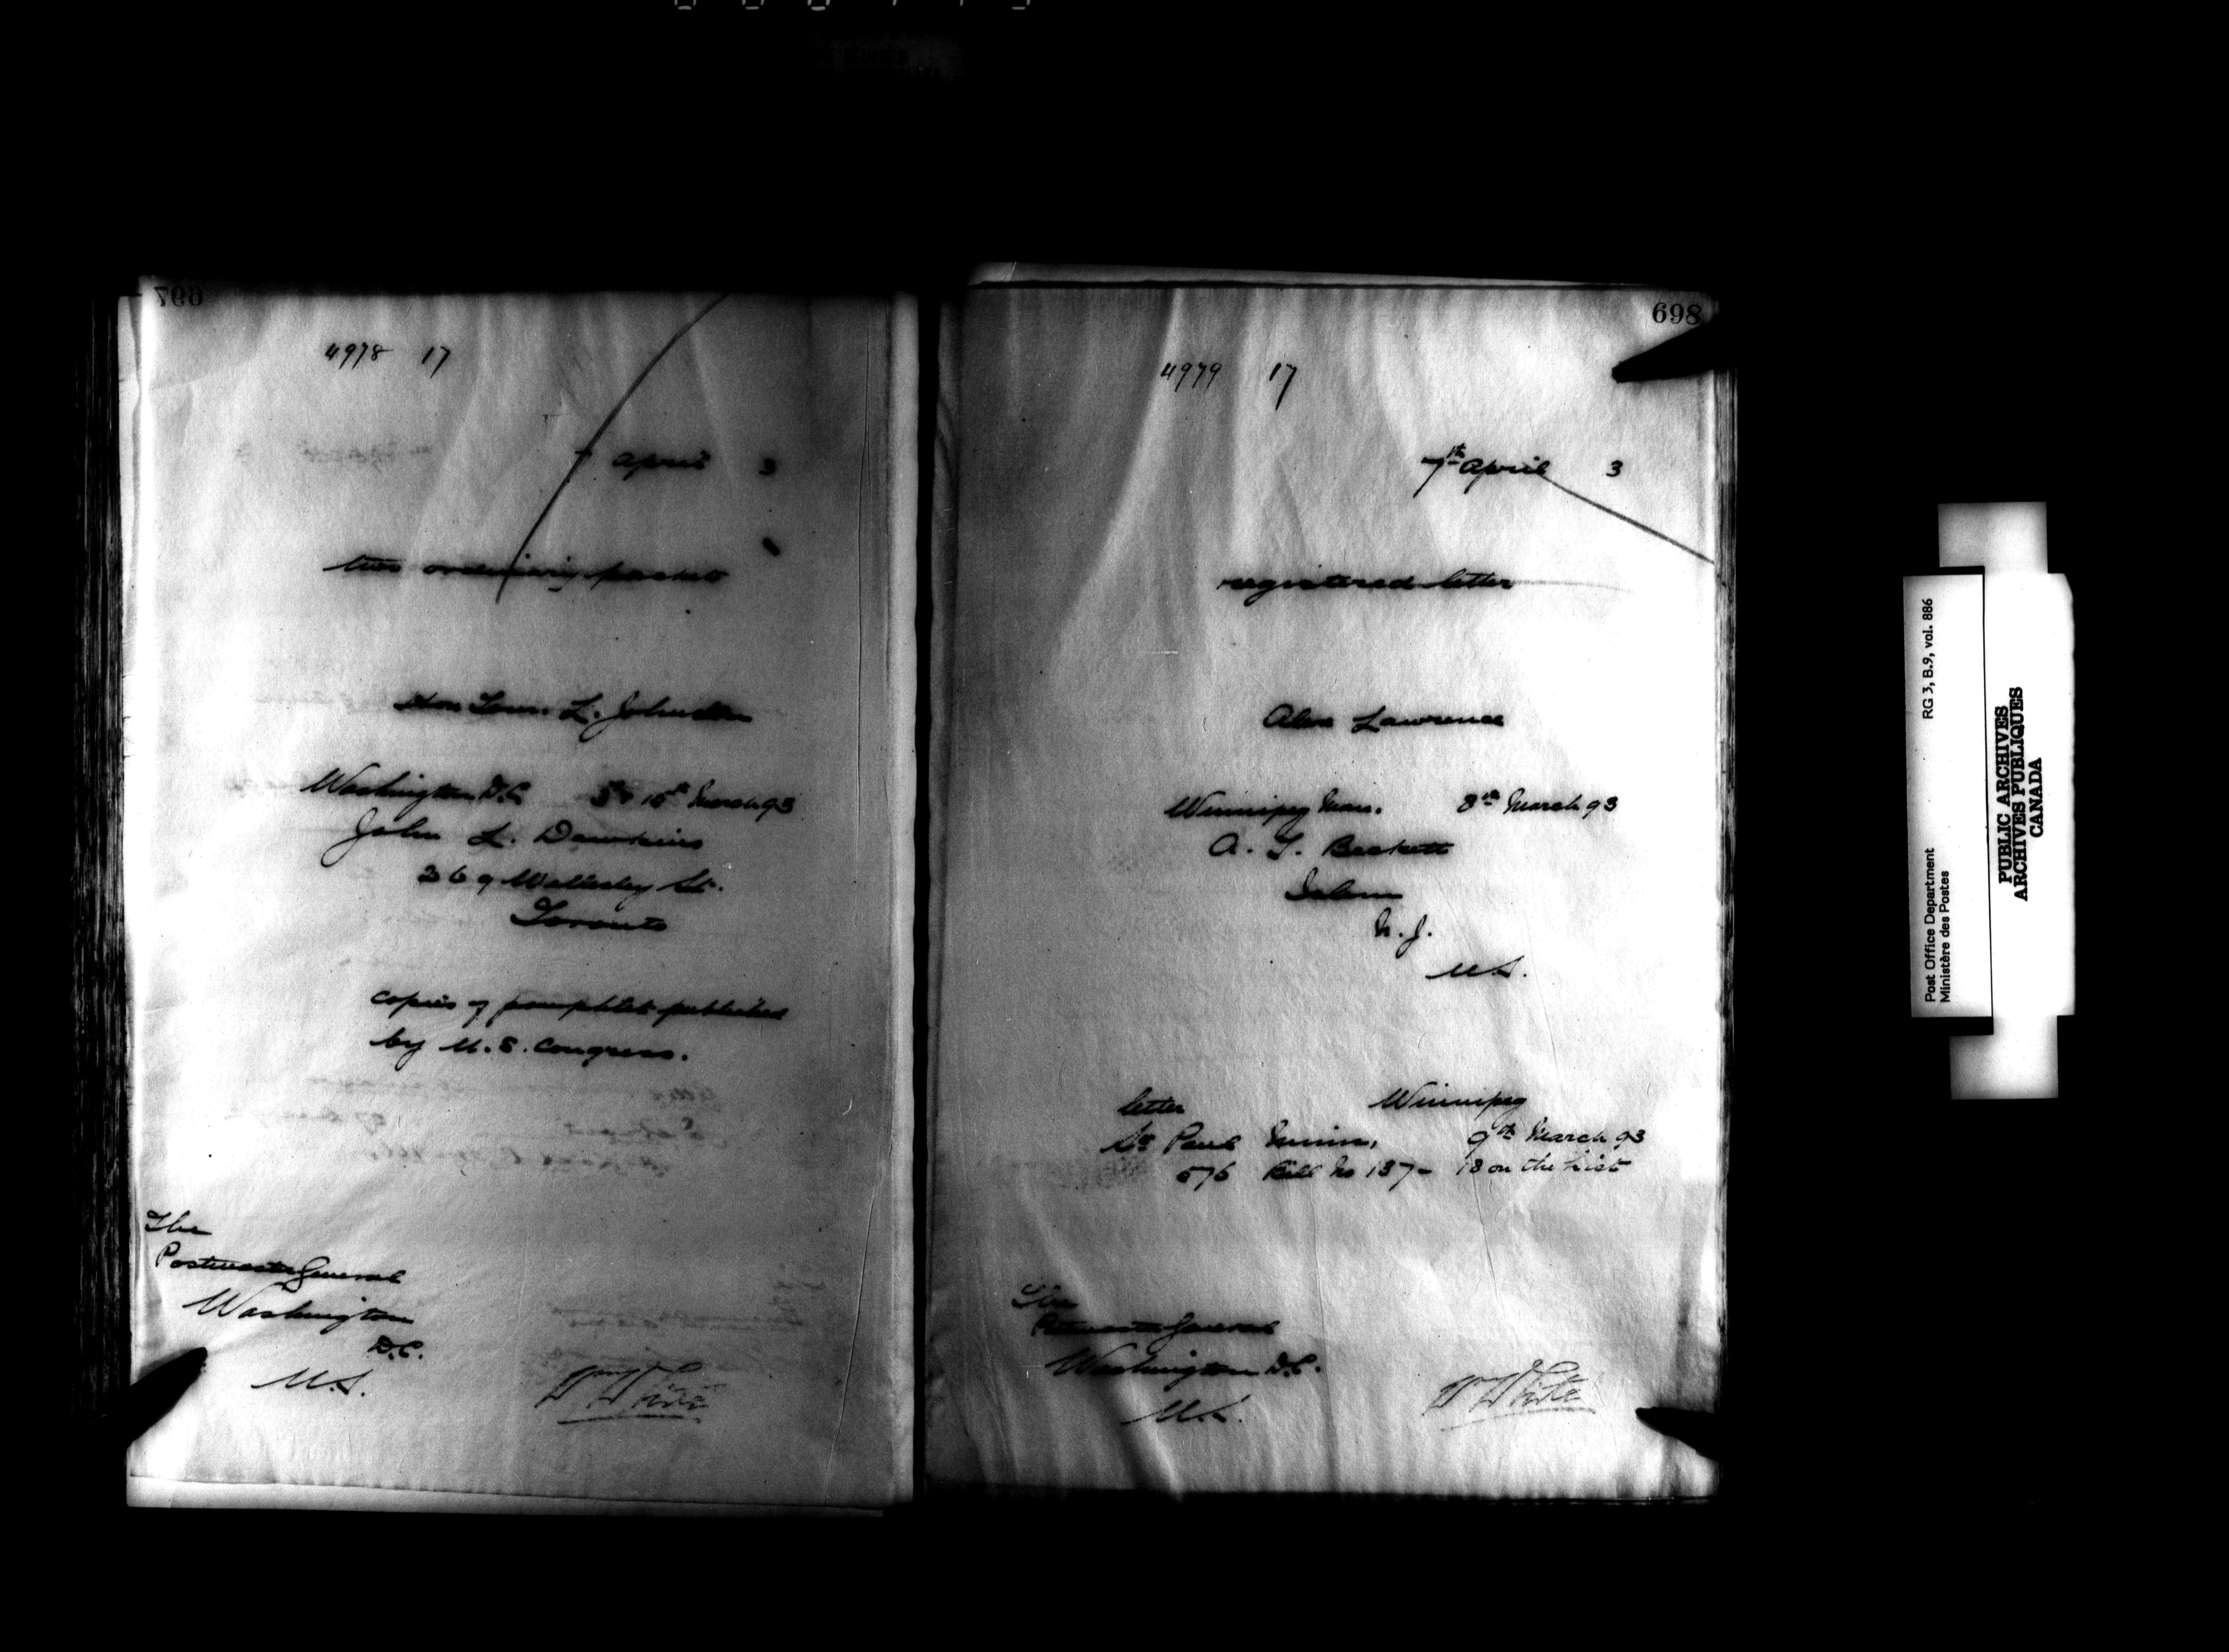 697
4978 17
7 April 3
two ordinary packets
Hon Tom. L. Johnston
Washington D.C. 3rd & 10th March 93
John L. Dawkins
369 Wellesley St.
Toronto
copies of pamphlet published
by U.S. Congress.
The
Postmaster General
Washington
D.C.
U.S.
Wm White
698
4979 17
7th April 3
registered letter
Alex Lawrence
Winnipeg Man. 8th March 93
A. T. Beckett
Salem
N.J.
U.S.
letter Winnipeg
St Paul Minn, 9th March 93
576 Bill No 137 - 18 on the list
The
Postmaster General
Washington D.C.
U.S.
Wm White
Post Office Department RG 3, B.9, vol. 886
Ministère des Postes
PUBLIC ARCHIVES
ARCHIVES PUBLIQUES
CANADA